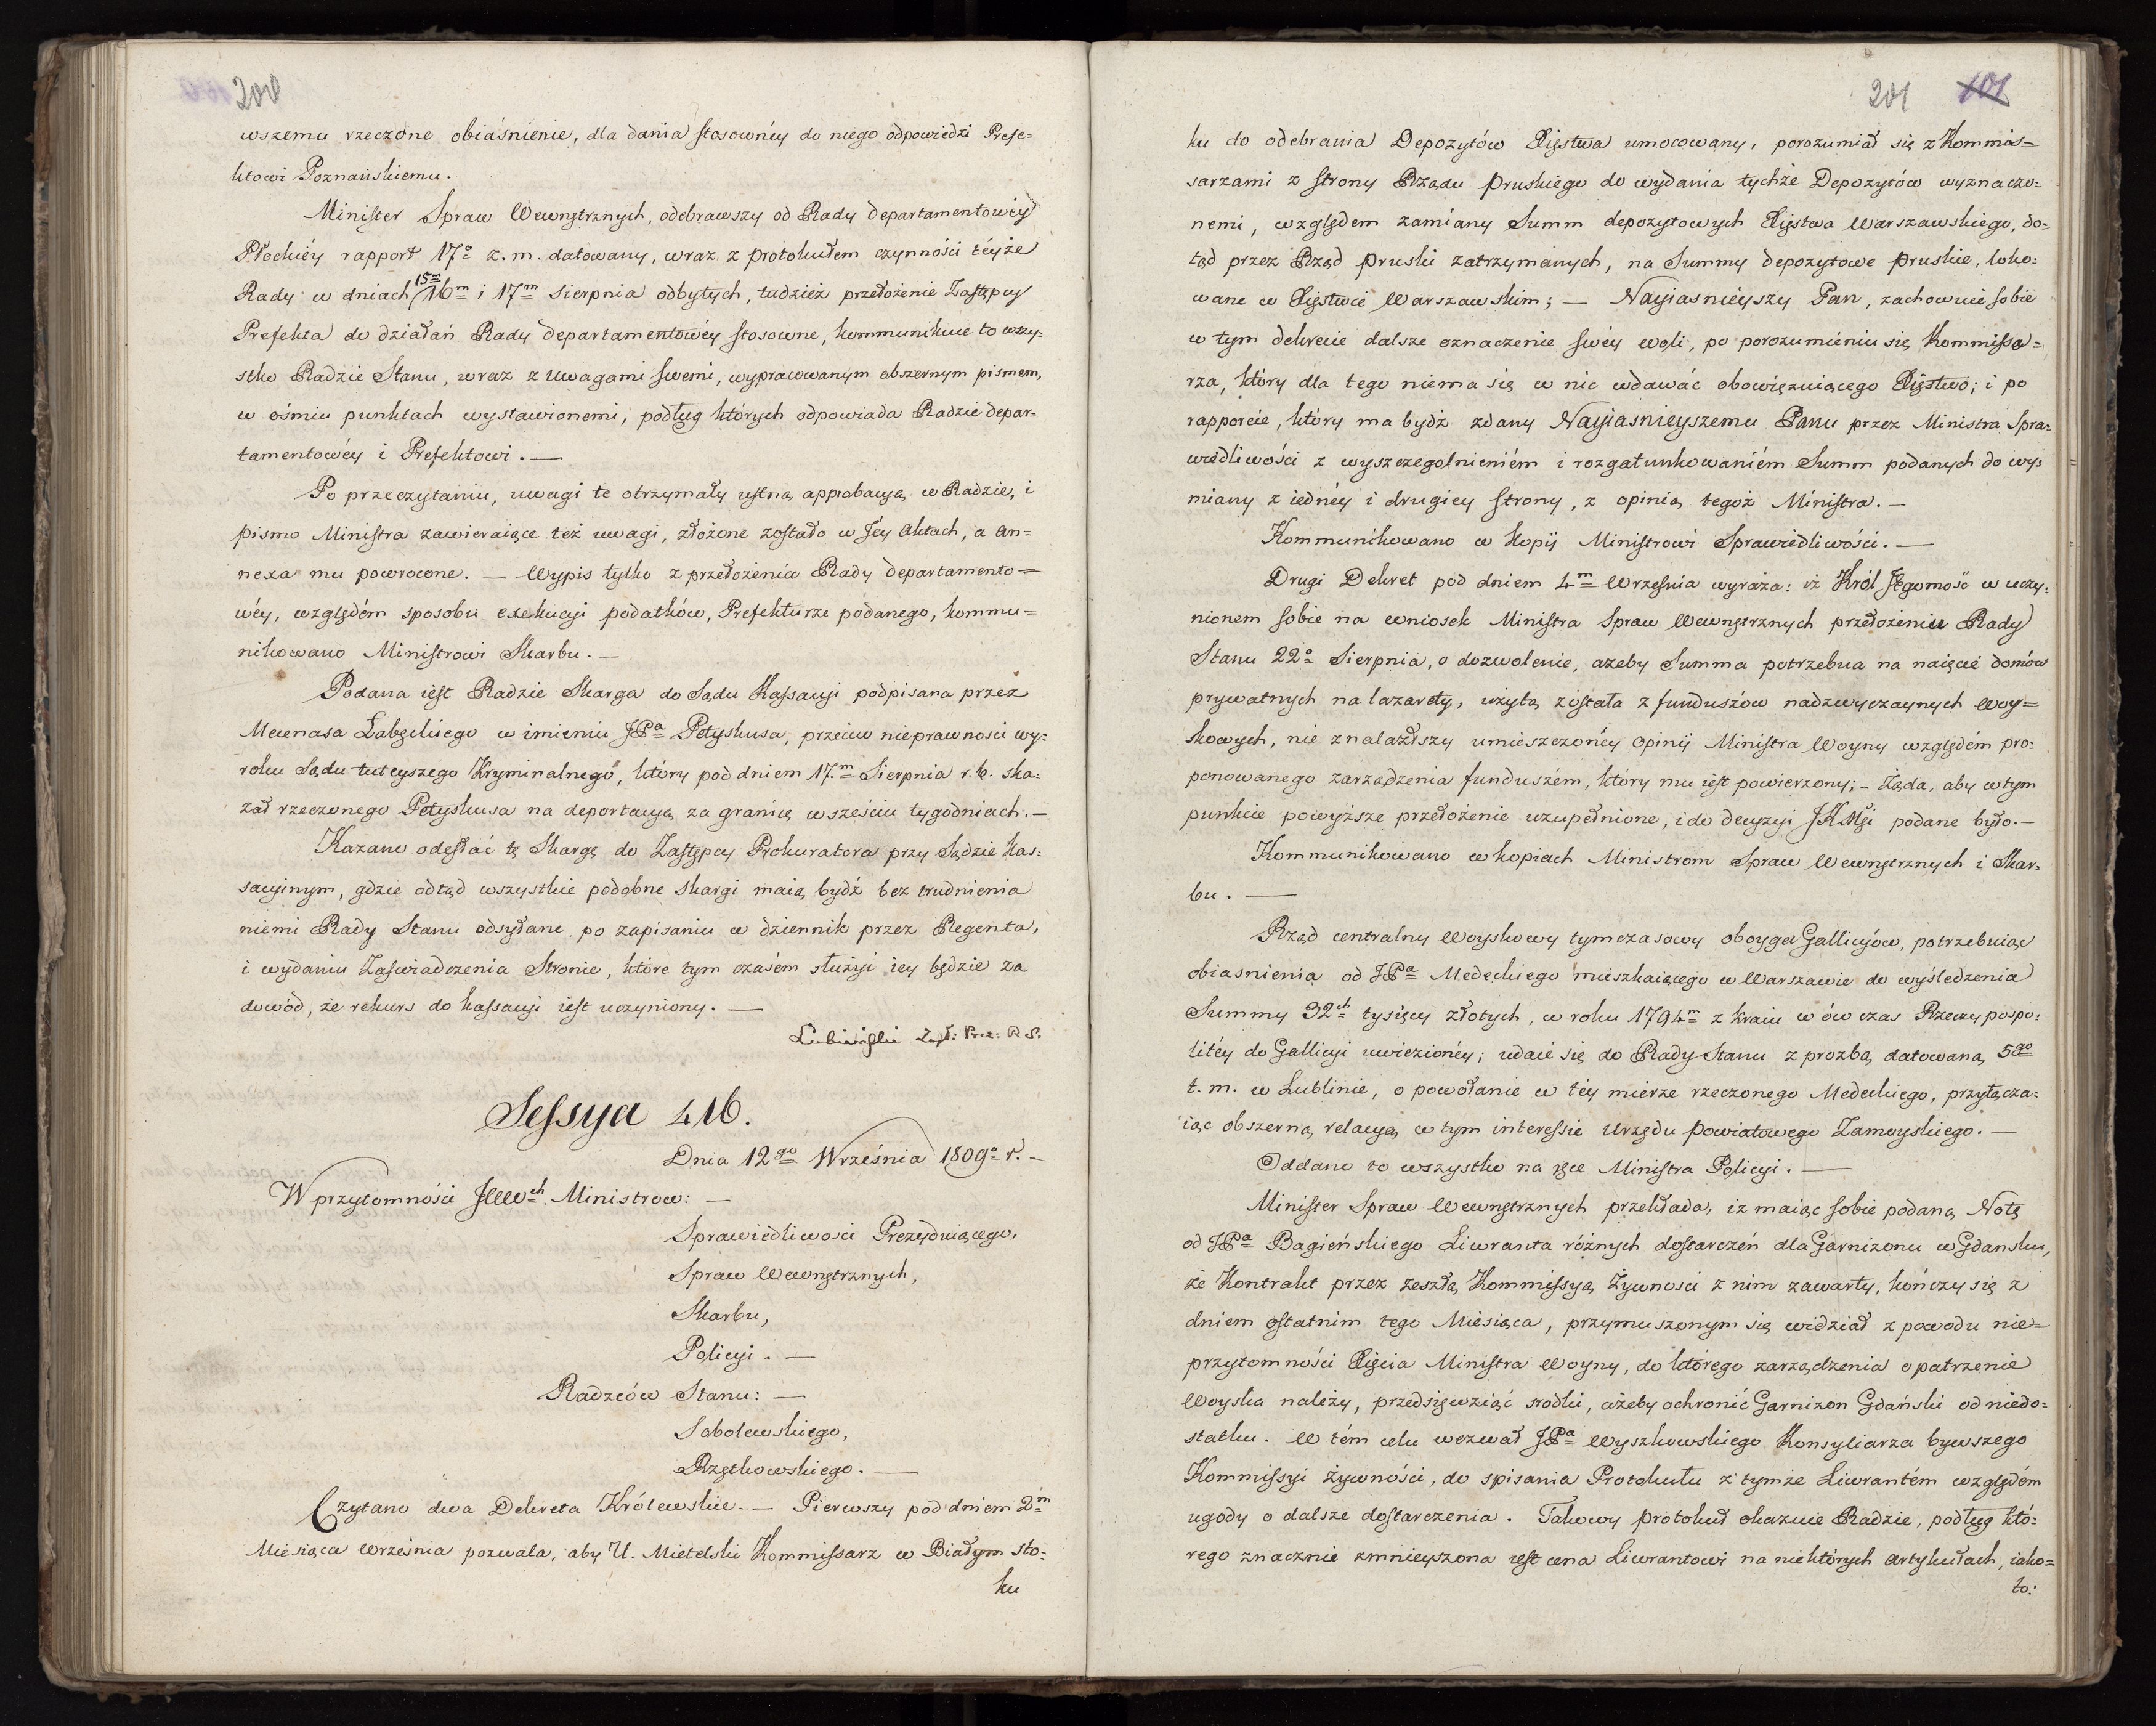 200
wszemu rzeczone obiaśnienie, dla dania stosownéy do niego odpowiedzi Prefe=
ktowi Poznańskiemu.
Minister Spraw Wewnętrznych, odebrawszy od Rady departamentowéy
Płockiéy rapport 17º z. m. datowany, wraz z protokułem czynności téyże
Rady w dniach 15m 16m i 17m Sierpnia odbytych, tudzież przełożenie Zastępcy
Prefekta do działań Rady departamentowéy stosowne, kommunikuie to wszy=
stko Radzie Stanu, wraz z uwagami swemi, wypracowanym obszernym pismem,
w ośmiu punktach wystawionemi, podług których odpowiada Radzie depar=
tamentowéy i Prefektowi. —
Po przeczytaniu, uwagi te otrzymały ustną approbacyą w Radzie, i
pismo Ministra zawieraiące też uwagi, złożone zostało w Jéy Aktach, a an=
nexa mu powrocone. — Wypis tylko z przełożenia Rady departamento=
wéy, względém sposobu exekucyi podatków, Prefekturze podanego, kommu=
nikowano Ministrowi Skarbu. —
Podana iest Radzie Skarga do Sądu Kassacyi podpisana przez
Mecenasa Łabęckiego w imieniu JPa Petyskusa, przeciw nieprawnosci wy=
roku Sądu tuteyszego Kryminalnego, który pod dniem 17.m Sierpnia r. b. ska=
zał rzeczonego Petyskusa na deportacyą za granicę w sześciu tygodniach. —
Kazano odesłać tę Skargę do Zastępcy Prokuratora przy Sądzie Kas=
sacyinym, gdzie odtąd wszystkie podobne skargi maią bydź bez trudnienia
niemi Rady Stanu odsyłane po zapisaniu w dziennik przez Regenta,
i wydaniu Zaswiadczenia Stronie, które tym czasém służyć iey będzie za
dowód, że rekurs do kassacyi iest uczyniony. —
Lubieński Zast: Prez: R S.
Sessya 416.
Dnia 12go Września 1809º r. —
W przytomności JWWch Ministrow: —
Sprawiedliwosci Prezyduiącego,
Spraw Wewnętrznych,
Skarbu,
Policyi. —
Radzców Stanu: —
Sobolewskiego,
Rzętkowskiego. —
Czytano dwa Dekreta Królewskie. — Pierwszy pod dniem 2m
Miesiąca Września pozwala, aby U. Mielelski Kommissarz w Białym sto=
ku
201 101
ku do odebrania Depozytów Xięstwa umocowany, porozumiał się z Kommis=
sarzami z strony Rządu Pruskiego do wydania tychże Depozytów wyznaczo=
nemi, względem zamiany Summ depozytowych Xięstwa Warszawskiego, do=
tąd przez Rząd pruski zatrzymanych, na Summy depozytowe pruskie, loko=
wane w Xięstwie Warszawskim; — Nayiasnieyszy Pan, zachowuie sobie
w tym dekrecie dalsze oznaczenie swéy woli, po porozumieniu się Kommissa=
rza, który dla tego niema się w nic wdawać obowięzuiącego Xięstwo; i po
rapporcie, który ma bydź zdany Nayiasnieyszemu Panu przez Ministra Spra=
wiedliwości z wyszczegolnieniém i rozgatunkowaniém Summ podanych do wy=
miany z iednéy i drugiey strony, z opinią tegoż Ministra. —
Kommunikowano w kopij Ministrowi Sprawiedliwości. —
Drugi Dekret pod dniem 4m Września wyraża: iż Król Jegomość w uczy=
nionem sobie na wniosek Ministra Spraw Wewnętrznych przełożeniu Rady
Stanu 22º Sierpnia, o dozwolenie, azeby Summa potrzebna na naięcié domów
prywatnych na lazarety, użytą została z funduszów nadzwyczaynych woy=
skowych, nie znalazłszy umieszczonéy Opinij Ministra Woyny względém pro=
ponowanego zarządzenia funduszém, który mu iest powierzony; — Żąda, aby w tym
punkcie powyższe przełożenie uzupełnione, i do decyzyi JKMći podane było. —
Kommunikowano w kopiach Ministrom Spraw Wewnętrznych i Skar=
bu. —
Rząd centralny Woyskowy tymczasowy oboyga Gallicyów, potrzebuiąc
obiasnienia od JPa Medeckiego mieszkaiącego w Warszawie do wyśledzenia
Summy 32ch tysięcy złotych, w roku 1794m z kraiu w ów czas Rzeczypospo=
litéy do Gallicyi uwiezionéy; udaie się do Rady Stanu z prozbą datowaną 5go
t. m. w Lublinie, o powołanie w téy mierze rzeczonego Medeckiego, przyłącza=
iąc obszerną relacyą w tym interessie Urzędu Powiatowego Zamoyskiego. —
Oddano to wszystko na ręce Ministra Policyi. —
Minister Spraw Wewnętrznych przekłada, iż maiąc sobie podaną Notę
od JPa Bagieńskiego Liwranta różnych dostarczeń dla Garnizonu w Gdansku,
że Kontrakt przez zeszłą Kommissyą Żywnosci z nim zawarty, kończy się z
dniem ostatnim tego Miesiąca, przymuszonym się widział z powodu nie=
przytomności Xięcia Ministra Woyny, do którego zarządzenia opatrzenie
Woyska należy, przedsięwziąć srodki, ażeby ochronić Garnizon Gdański od niedo=
statku. W tém celu wezwał JPa Wyszkowskiego Konsyliarza bywszego
Kommissyi żywności, do spisania Protokułu z tymże Liwrantém względém
ugody o dalsze dostarczenia. Takowy protokuł okazuie Radzie, podług któ=
rego znacznie zmnieyszona iest cena Liwrantowi na niektórych artykułach, iako=
to: